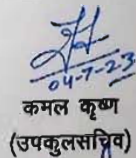 04-7-23
कमल कृष्ण
(उपकुलसचिव)